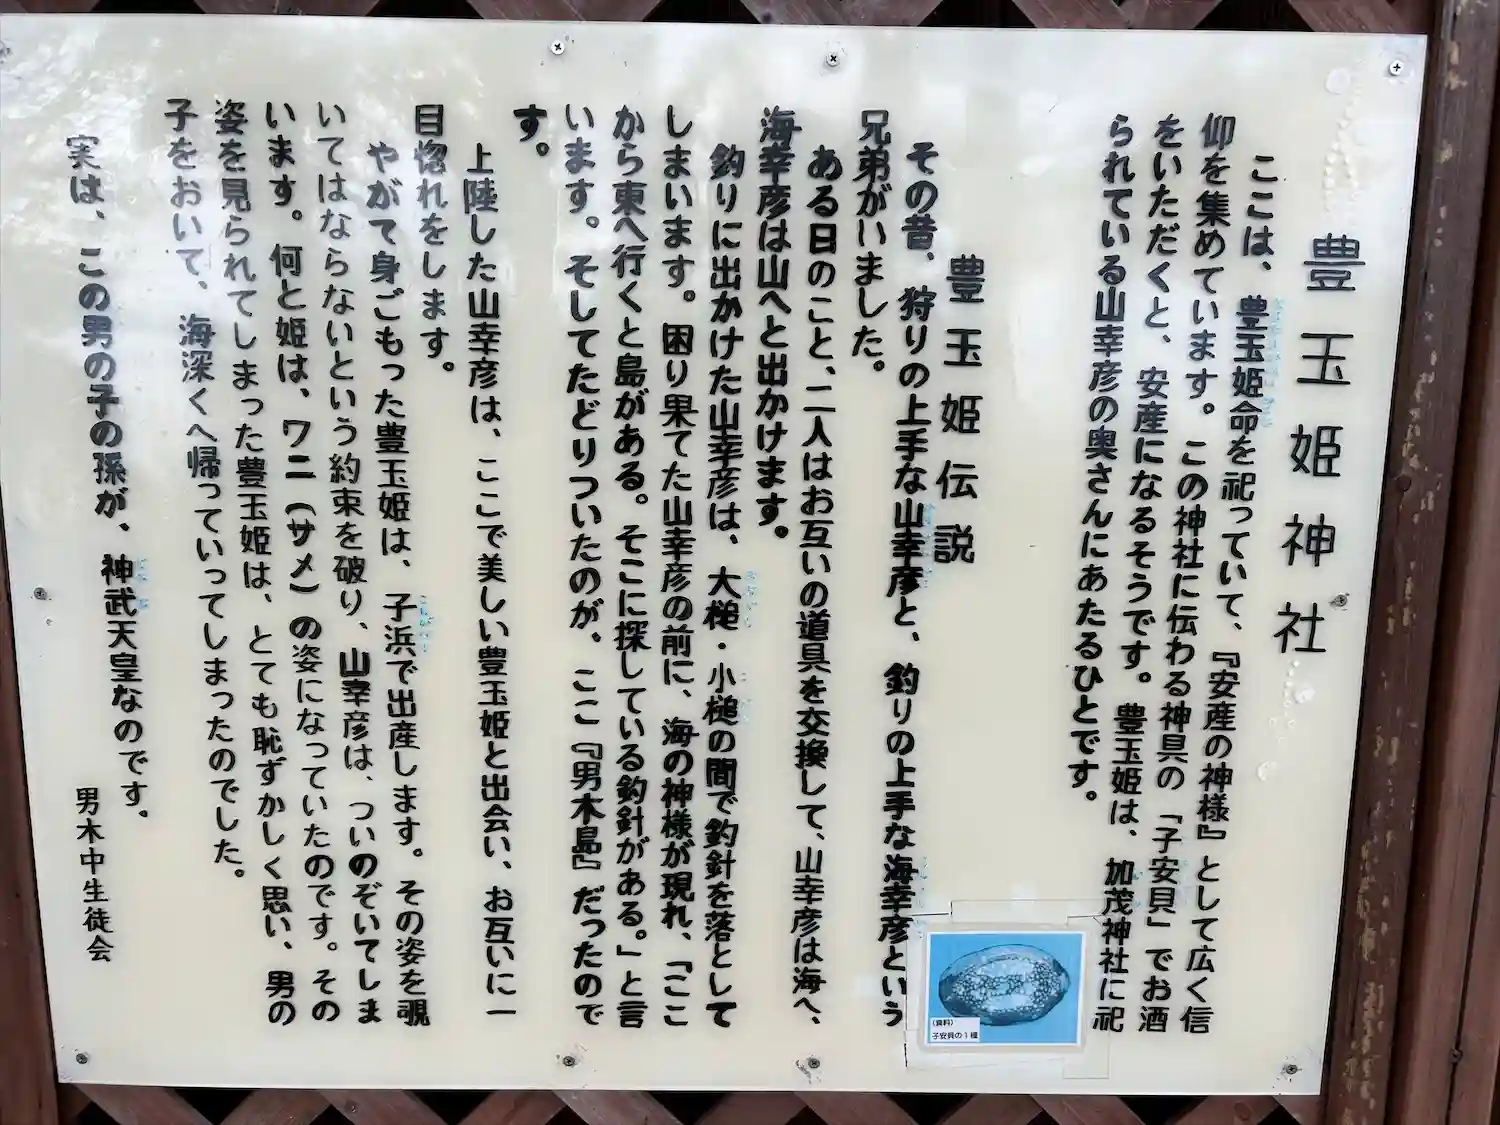 豊玉姫神社
ここは、豊玉姫命を祀っていて、『安産の神様』として広く信
仰を集めています。この神社に伝わる神具の「子安貝」でお酒
をいただくと、安産になるそうです。豊玉姫は、加茂神社に祀
られている山幸彦の奥さんにあたるひとです。
豊玉姫伝説
その昔、狩りの上手な山幸彦と、釣りの上手な海幸彦という
兄弟がいました。
ある日のこと、二人はお互いの道具を交換して、山幸彦は海へ、
海幸彦は山へと出かけます。
釣りに出かけた山幸彦は、大槌・小槌の間で釣針を落として
しまいます。困り果てた山幸彦の前に、海の神様が現れ、「ここ
から東へ行くと島がある。そこに探している釣針がある。」と言
います。そしてたどりついたのが、ここ『男木島』だったので
す。
上陸した山幸彦は、ここで美しい豊玉姫と出会い、お互いに一
目惚れをします。
やがて身ごもった豊玉姫は、子浜で出産します。その姿を覗
いてはならないという約束を破り、山幸彦は、ついのぞいてしま
います。何と姫は、ワニ(サメ)の姿になっていたのです。その
姿を見られてしまった豊玉姫は、とても恥ずかしく思い、男の
子をおいて、海深くへ帰っていってしまったのでした。
実は、この男の子の孫が、神武天皇なのです。
男木中生徒会
(資料)
子安貝の1種